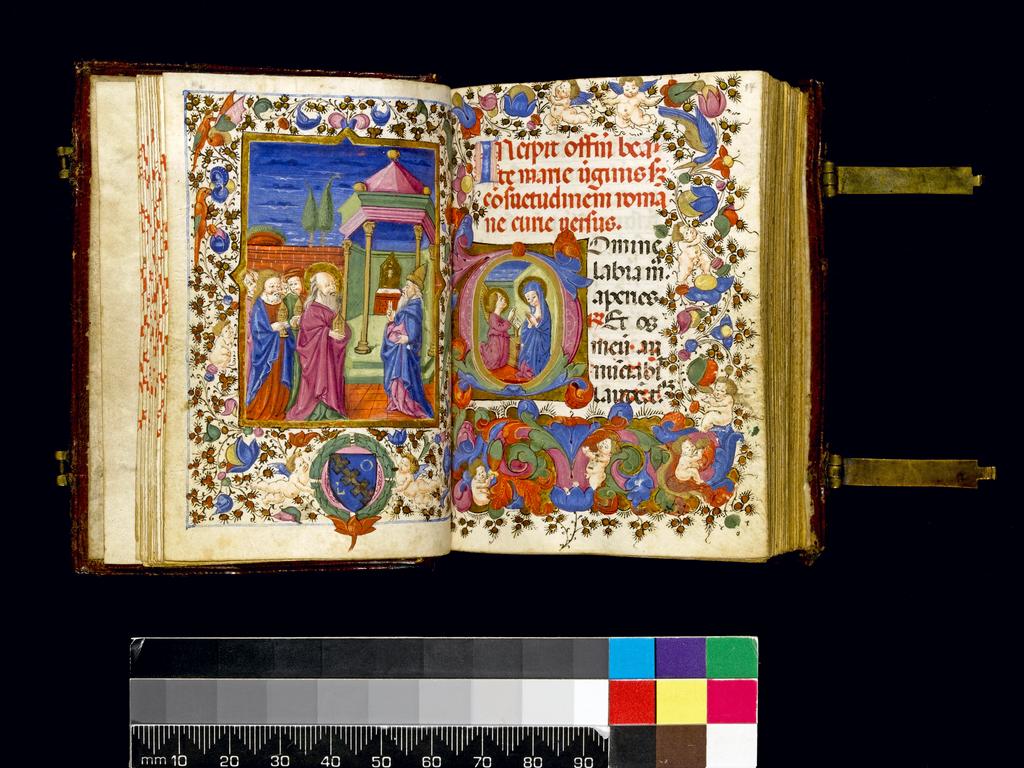 INcipit offm bea-
te marie ūginis sz
cōsuetudinem roma
ne curie versus.
Domine
labia m̄.
aperies.
R Et os
meū an
nūctabi
laudez.
mm 10 20 30 40 50 60 70 80 90